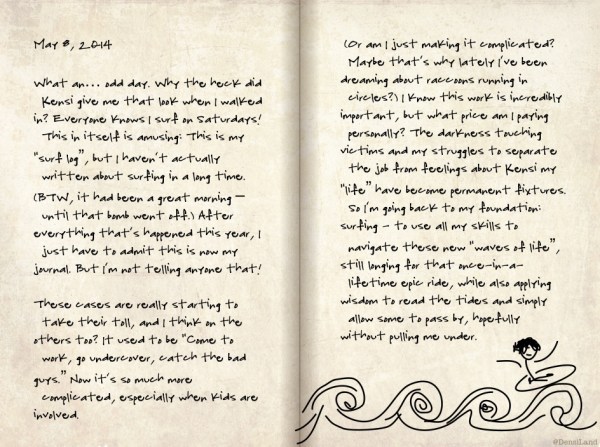 May 8, 2014
What an... odd day. Why the heck did
Kensi give me that look when I walked
in? Everyone knows I surf on Saturdays!
This in itself is amusing: This is my
"surf log", but I haven't actually
written about surfing in a long time.
(BTW, it had been a great morning –
until that bomb went off.) After
everything that's happened this year, I
just have to admit this is now my
journal. But I'm not telling anyone that!
These cases are really starting to
take their toll, and I think on the
others too? It used to be "Come to
work, go undercover, catch the bad
guys." Now it's so much more
complicated, especially when kids are
involved.
(Or am I just making it complicated?
Maybe that's why lately I've been
dreaming about raccoons running in
circles?) I know this work is incredibly
important, but what price am I paying
personally? The darkness touching
victims and my struggles to separate
the job from feelings about Kensi my
"life" have become permanent fixtures.
So I'm going back to my foundation:
surfing – to use all my skills to
navigate these new "waves of life",
still longing for that once-in-a-
lifetime epic ride, while also applying
wisdom to read the tides and simply
allow some to pass by, hopefully
without pulling me under.
@DensiLand